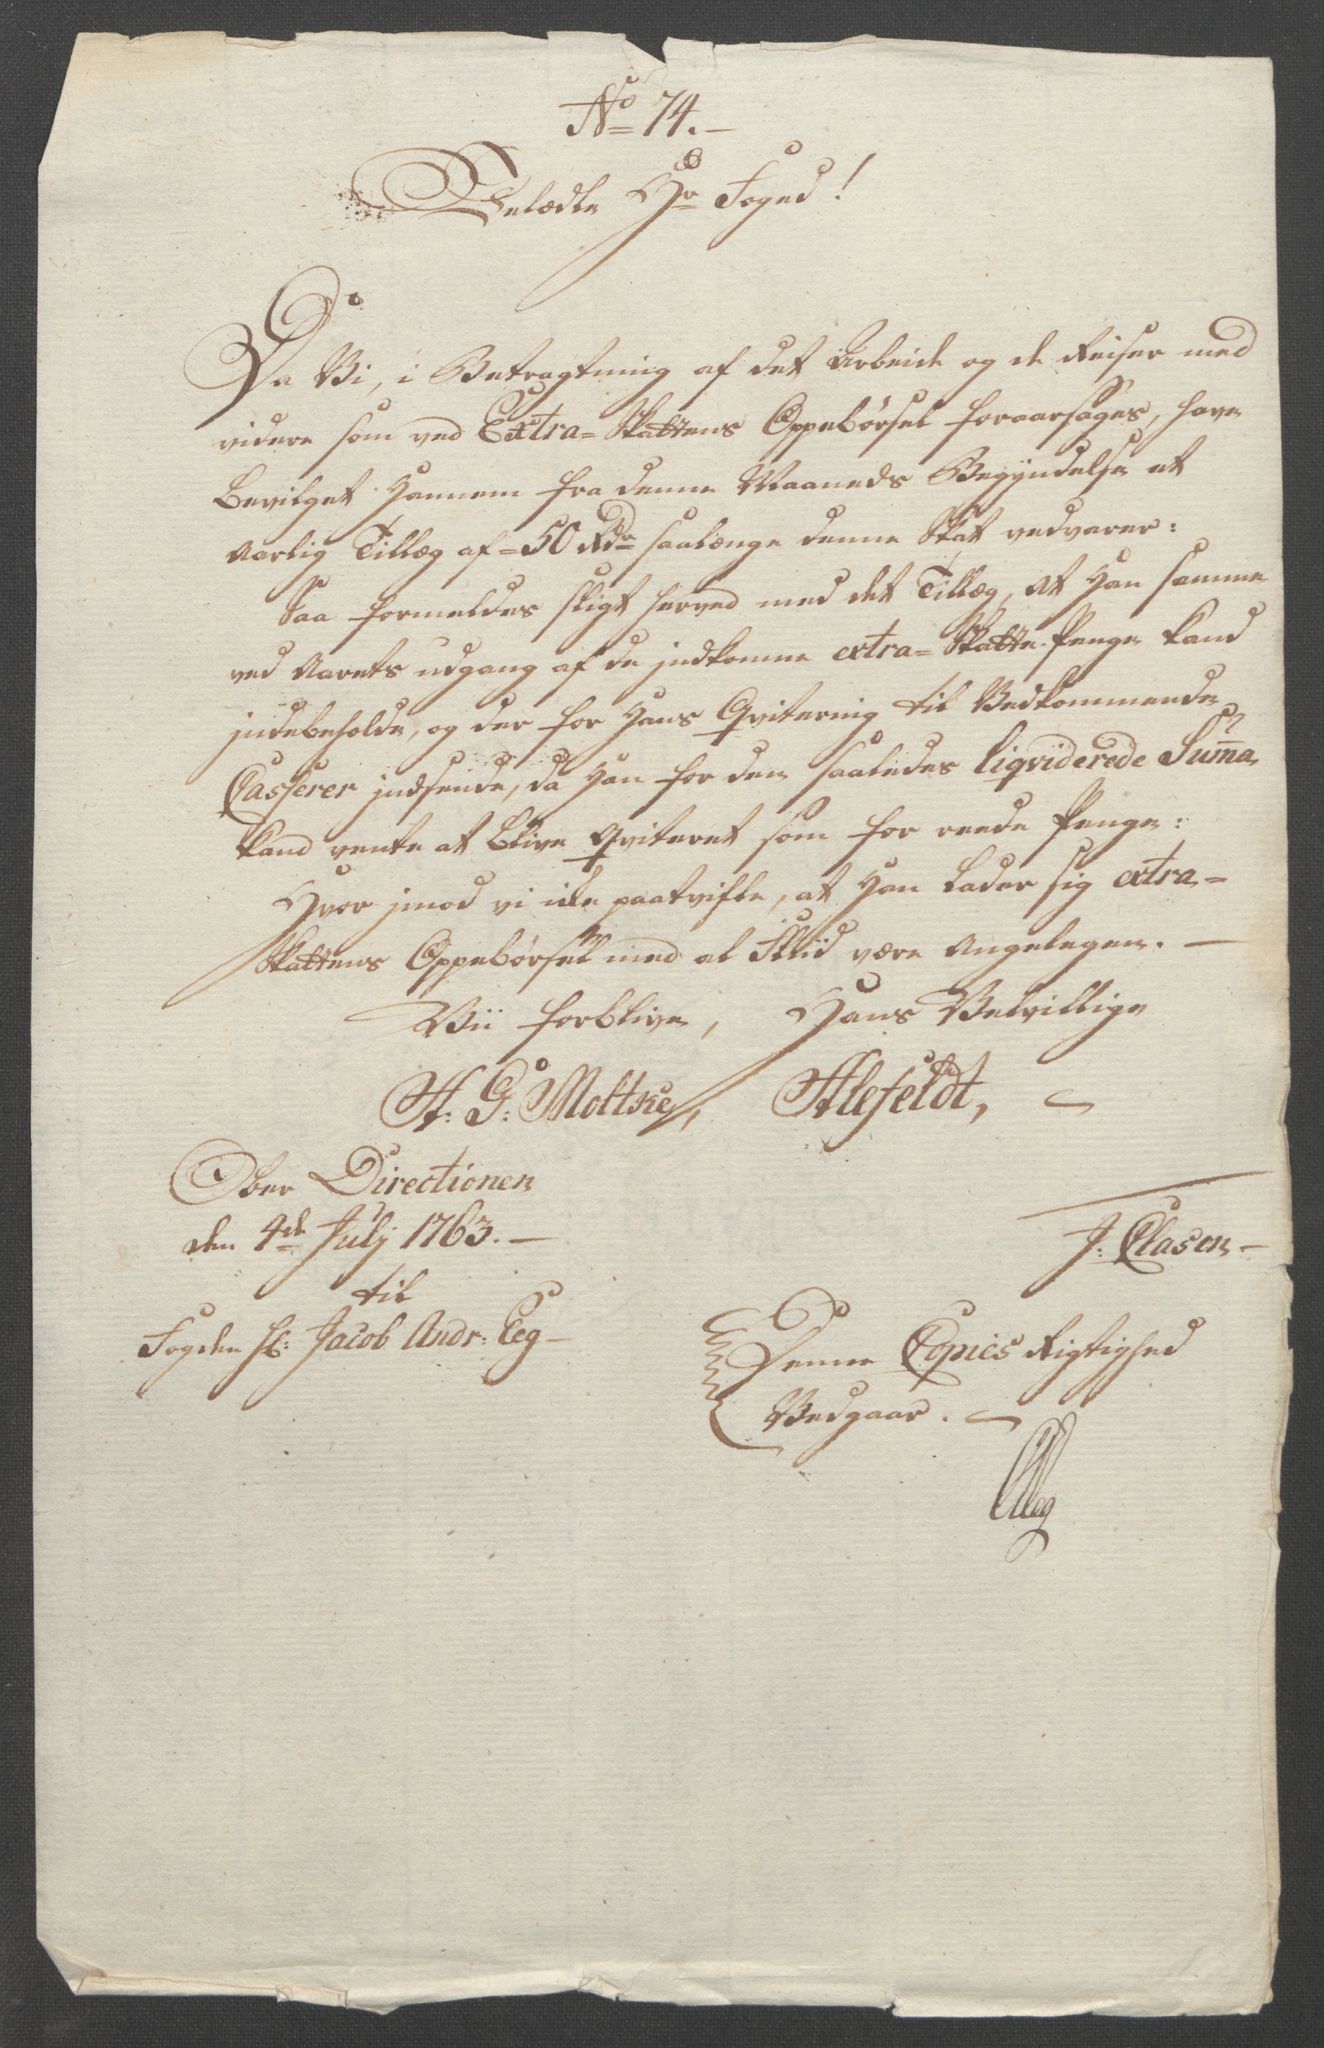 No 74.
Velædle Hr Foged!
Da Vi, i Betragtning af det Arbeide og de Reiser med
videre som ved Extra-Skattens Oppebørsel foraarsages, have
bevilget Hannem fra denne Maaneds Begÿndelse et
Aarlig Tillæg af 50 Rdr saalænge denne Skat vedvarer:
Saa formeldes sligt herved med det Tillæg, at Han samme
ved Aarets udgang af de jndkomne extra-Skatte Penge kand
jndebeholde, og der for Hans Qvitering til Vedkommende
Casserer jndsende, da Han for den saaledes liqviderede Summa
kand vente at blive Qviteret som for reede Penge:
Hvor jmod vi ikke paatvifle, at Han lader sig extra-
Skattens Oppebørsel med al Fliid være Angelegen.
Vii forblive, Hans Velvillige
A: G: Moltke, Ahlefeldt,
Ober Directionen
den 4de Julj 1763.
J: Clasen
til
Fogden Hr: Jacob Andr: Eeg
Denne Copies Rigtighed
Vedgaar.